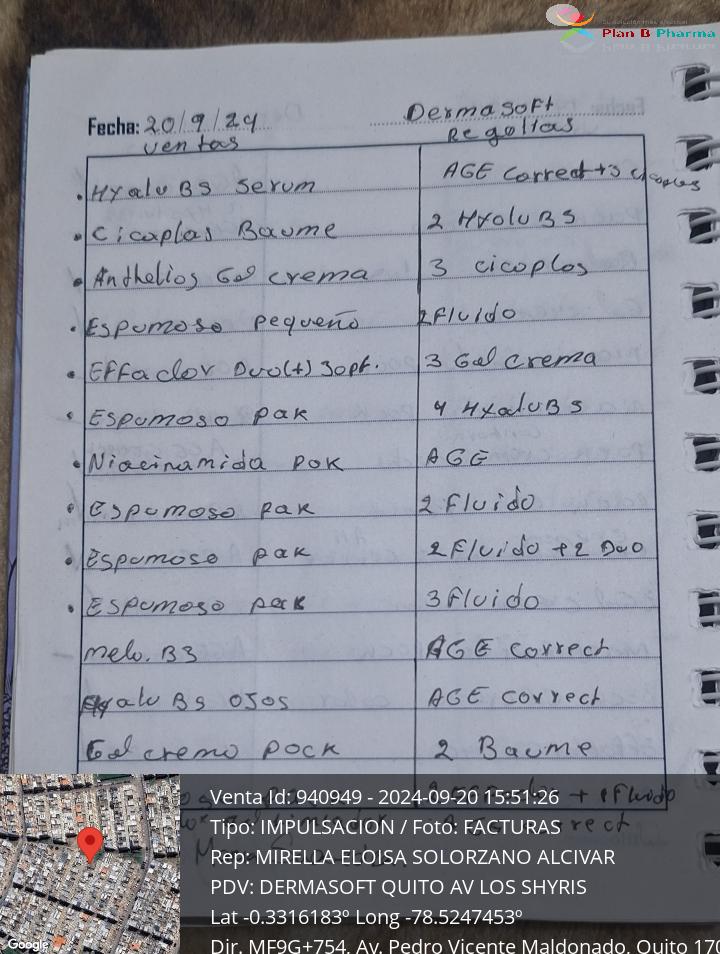 Plan B Pharma
Fecha: 20/9/24 Dermasoft
ventas Regalias
• Hyalu B5 serum AGE Correct + 3 cicaplas
• Cicaplas Baume 2 Hyalu B5
• Anthelios Gel crema 3 cicaplas
• Espumoso pequeño 2 Fluido
• EFFaclor Duo(+) 30pt. 3 Gel crema
• Espumoso pak 4 Hyalu B5
• Niacinamida pak AGE
• Espumoso pak 2 Fluido
• Espumoso pak 2 Fluido + 2 Duo
• Espumoso pack 3 Fluido
melo. B3 AGE correct
Hyalu B5 OJOS AGE correct
Gel crema pack 2 Baume
+ 1 Fluido
Venta Id: 940949 - 2024-09-20 15:51:26
Tipo: IMPULSACION / Foto: FACTURAS
Rep: MIRELLA ELOISA SOLORZANO ALCIVAR
PDV: DERMASOFT QUITO AV LOS SHYRIS
Lat -0.3316183º Long -78.5247453º
Dir. MF9G+754, Av. Pedro Vicente Maldonado, Quito 170
Google